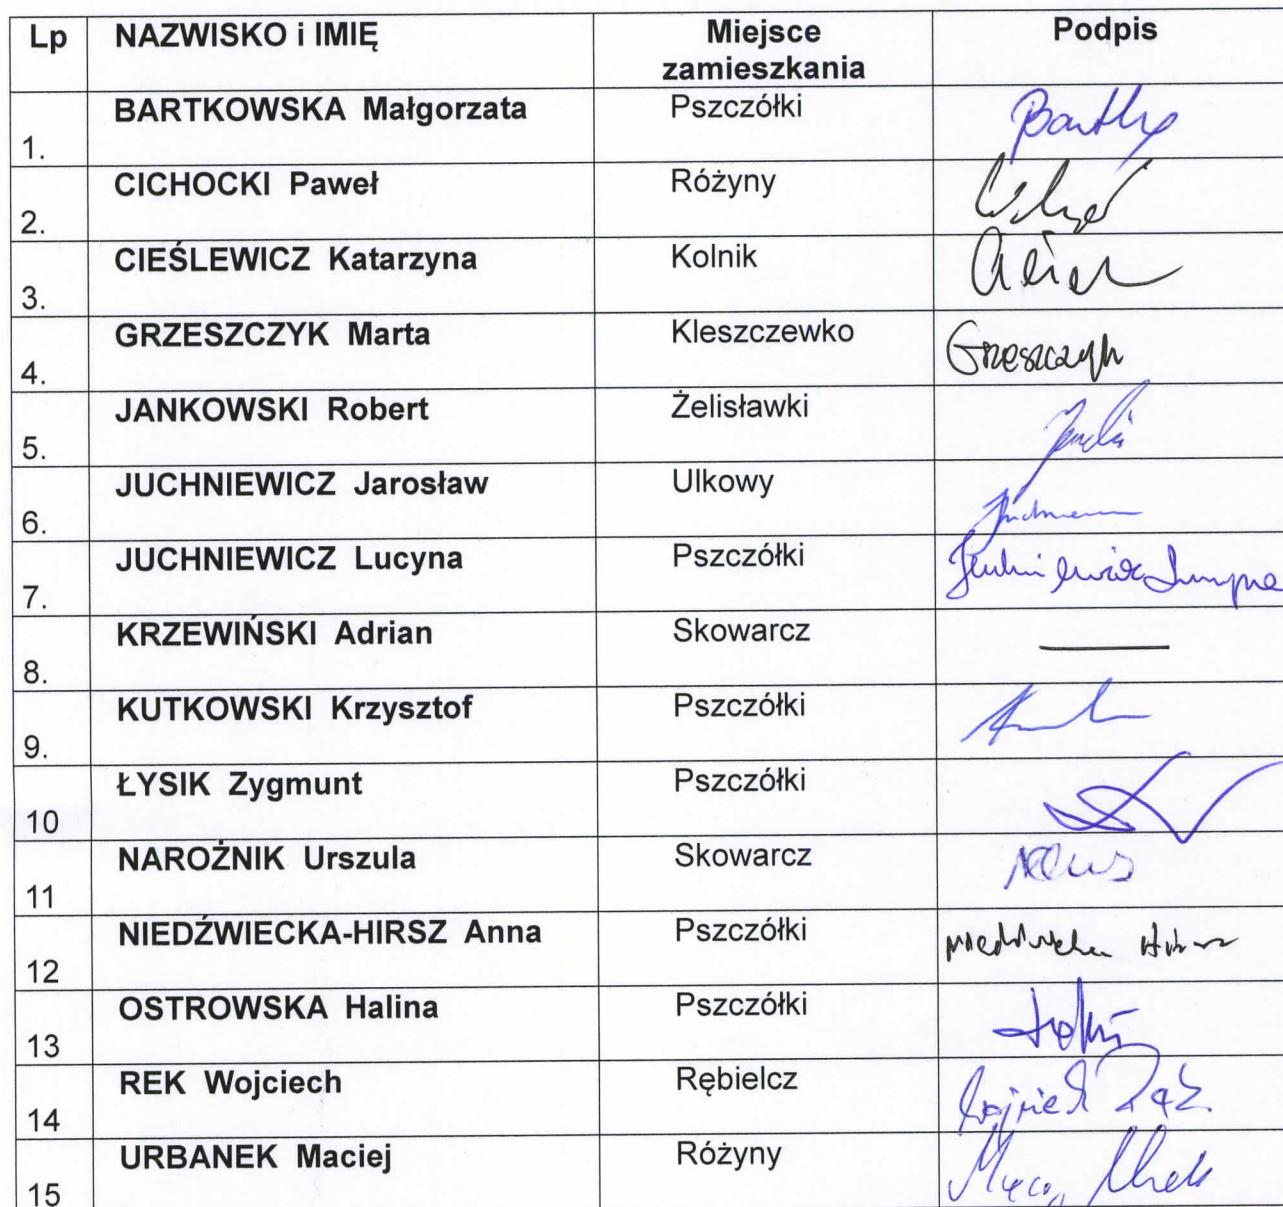 Lp NAZWISKO i IMIĘ Miejsce zamieszkania Podpis
1. BARTKOWSKA Małgorzata Pszczółki
2. CICHOCKI Paweł Różyny
3. CIEŚLEWICZ Katarzyna Kolnik
4. GRZESZCZYK Marta Kleszczewko Grzeszczyk
5. JANKOWSKI Robert Żelisławki
6. JUCHNIEWICZ Jarosław Ulkowy
7. JUCHNIEWICZ Lucyna Pszczółki Juchniewicz Lucyna
8. KRZEWIŃSKI Adrian Skowarcz
9. KUTKOWSKI Krzysztof Pszczółki
10 ŁYSIK Zygmunt Pszczółki
11 NAROŻNIK Urszula Skowarcz
12 NIEDŹWIECKA-HIRSZ Anna Pszczółki
13 OSTROWSKA Halina Pszczółki
14 REK Wojciech Rębielcz
15 URBANEK Maciej Różyny